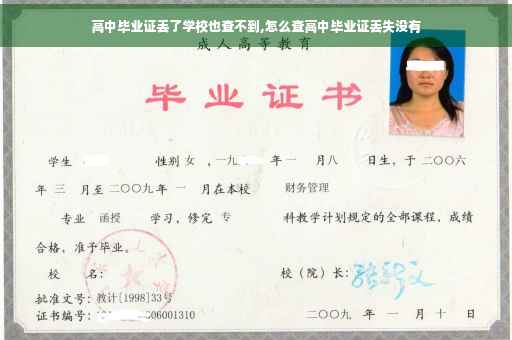 高中毕业证丢了学校也查不到,怎么查高中毕业证丢失没有
成人高等教育
毕业证书
学生 性别 女 ,一九 年 一 月八 日生，于二〇〇六
年 三 月至二〇〇九年 一 月在本校 财务管理
专业 函授 学习，修完 专 科教学计划规定的全部课程，成绩
合格，准予毕业。
校 名： 校（院）长：
批准文号：教计[1998]33号
证书编号： 06001310 二〇〇九 年 一 月 十 日